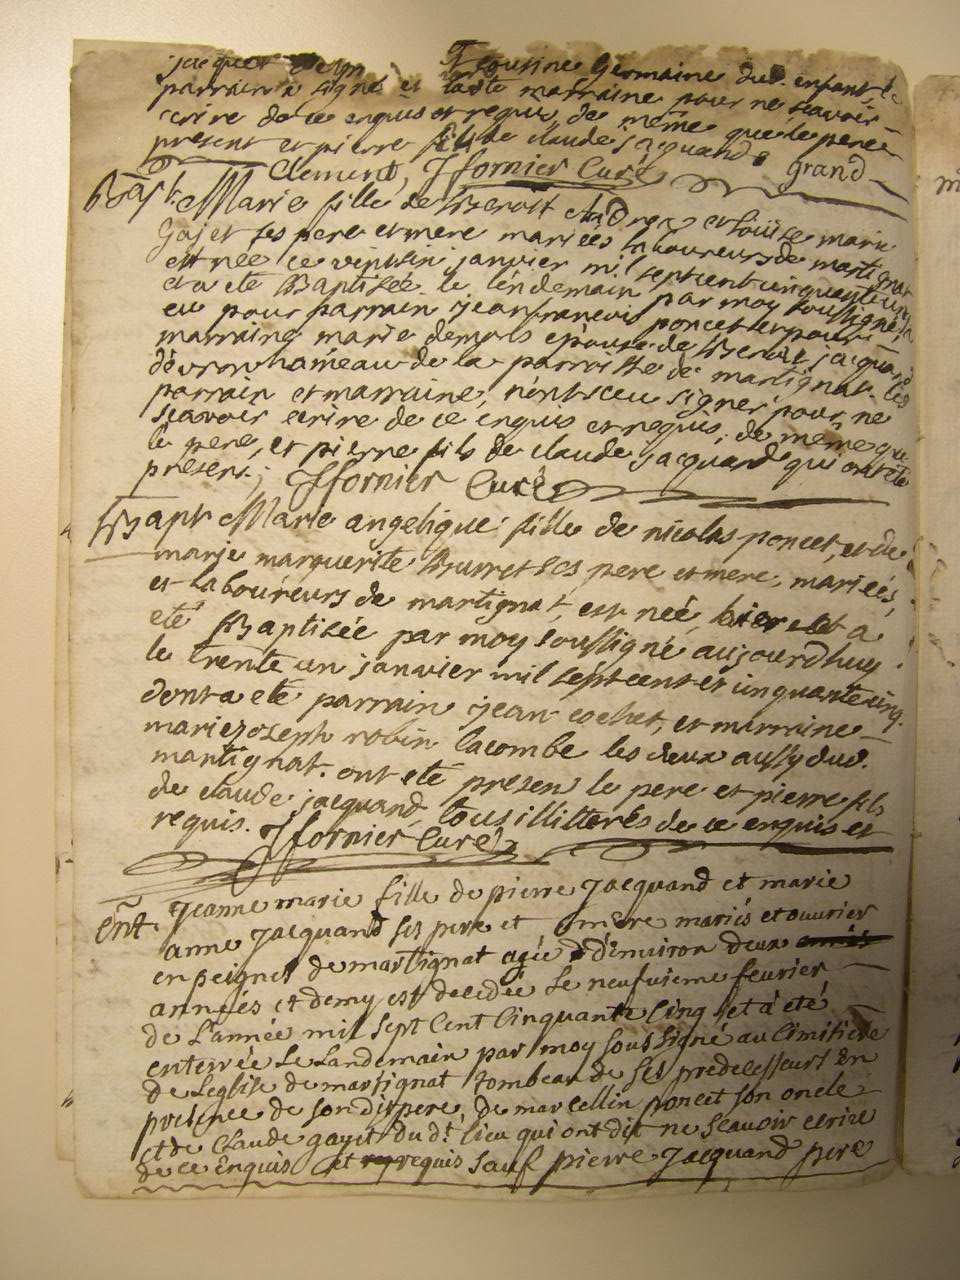 jacques cousine Germaine dud. enfant, le
parrain a signé et marraine pour ne scavoir
ecrire de ce enquis et requis, de même que le pere
present et pierre fils de claude jacquand Grand
Clement, Jfornier Curé
Bapt. Marie fille de Benoit et Louise marie
Gojet ses pere et mere mariés laboureurs de martignat
est née ce vint janvier mil sept cent cinquante
et a eté Baptisée le lendemain par moy soussigné,
eu pour parrain jean francois poncet et pour
marraine marie épouse de Benoit jacquand
d'évron hameau de la parroisse de martignat. les
parrain et marraine, n'ont sceu signer pour ne
scavoir ecrire de ce enquis et requis, de même que
le pere, et pierre fils de claude jacquand qui ont été
present; Jfornier Curé
Bapt Marie angelique fille de nicolas poncet, et de
marie marguerite Burret ses pere et mere, mariées,
et laboureurs de martignat, est née hier et a
eté Baptisée par moy soussigné aujourdhuy
le trente un janvier mil sept cent et cinquante cinq.
dont a eté parrain jean cochet, et marraine
marie joseph robin lacombe les deux aussy dud.
martignat. ont eté presen le pere et pierre fils
de claude jacquand, tous illitterés de ce enquis et
requis. Jfornier Curé
Ent. Jeanne marie fille de pierre Jacquand et marie
anne Jacquand ses pere et mere mariés et ouvrier
en peignes de martignat agée d'environ deux
années et demy est decedée le neufvieme fevrier
de L'année mil sept cent cinquante cinq et a été
enterrée le Landemain par moy sous signé au Cimitiere
de Leglise de martignat tombeau de ses predecesseurs en
presence de son dit pere, de marcellin poncet son oncle
et de Claude gayet du d.t lieu qui ont dit ne scavoir ecrire
de ce enquis et requis sauf pierre Jacquand pere